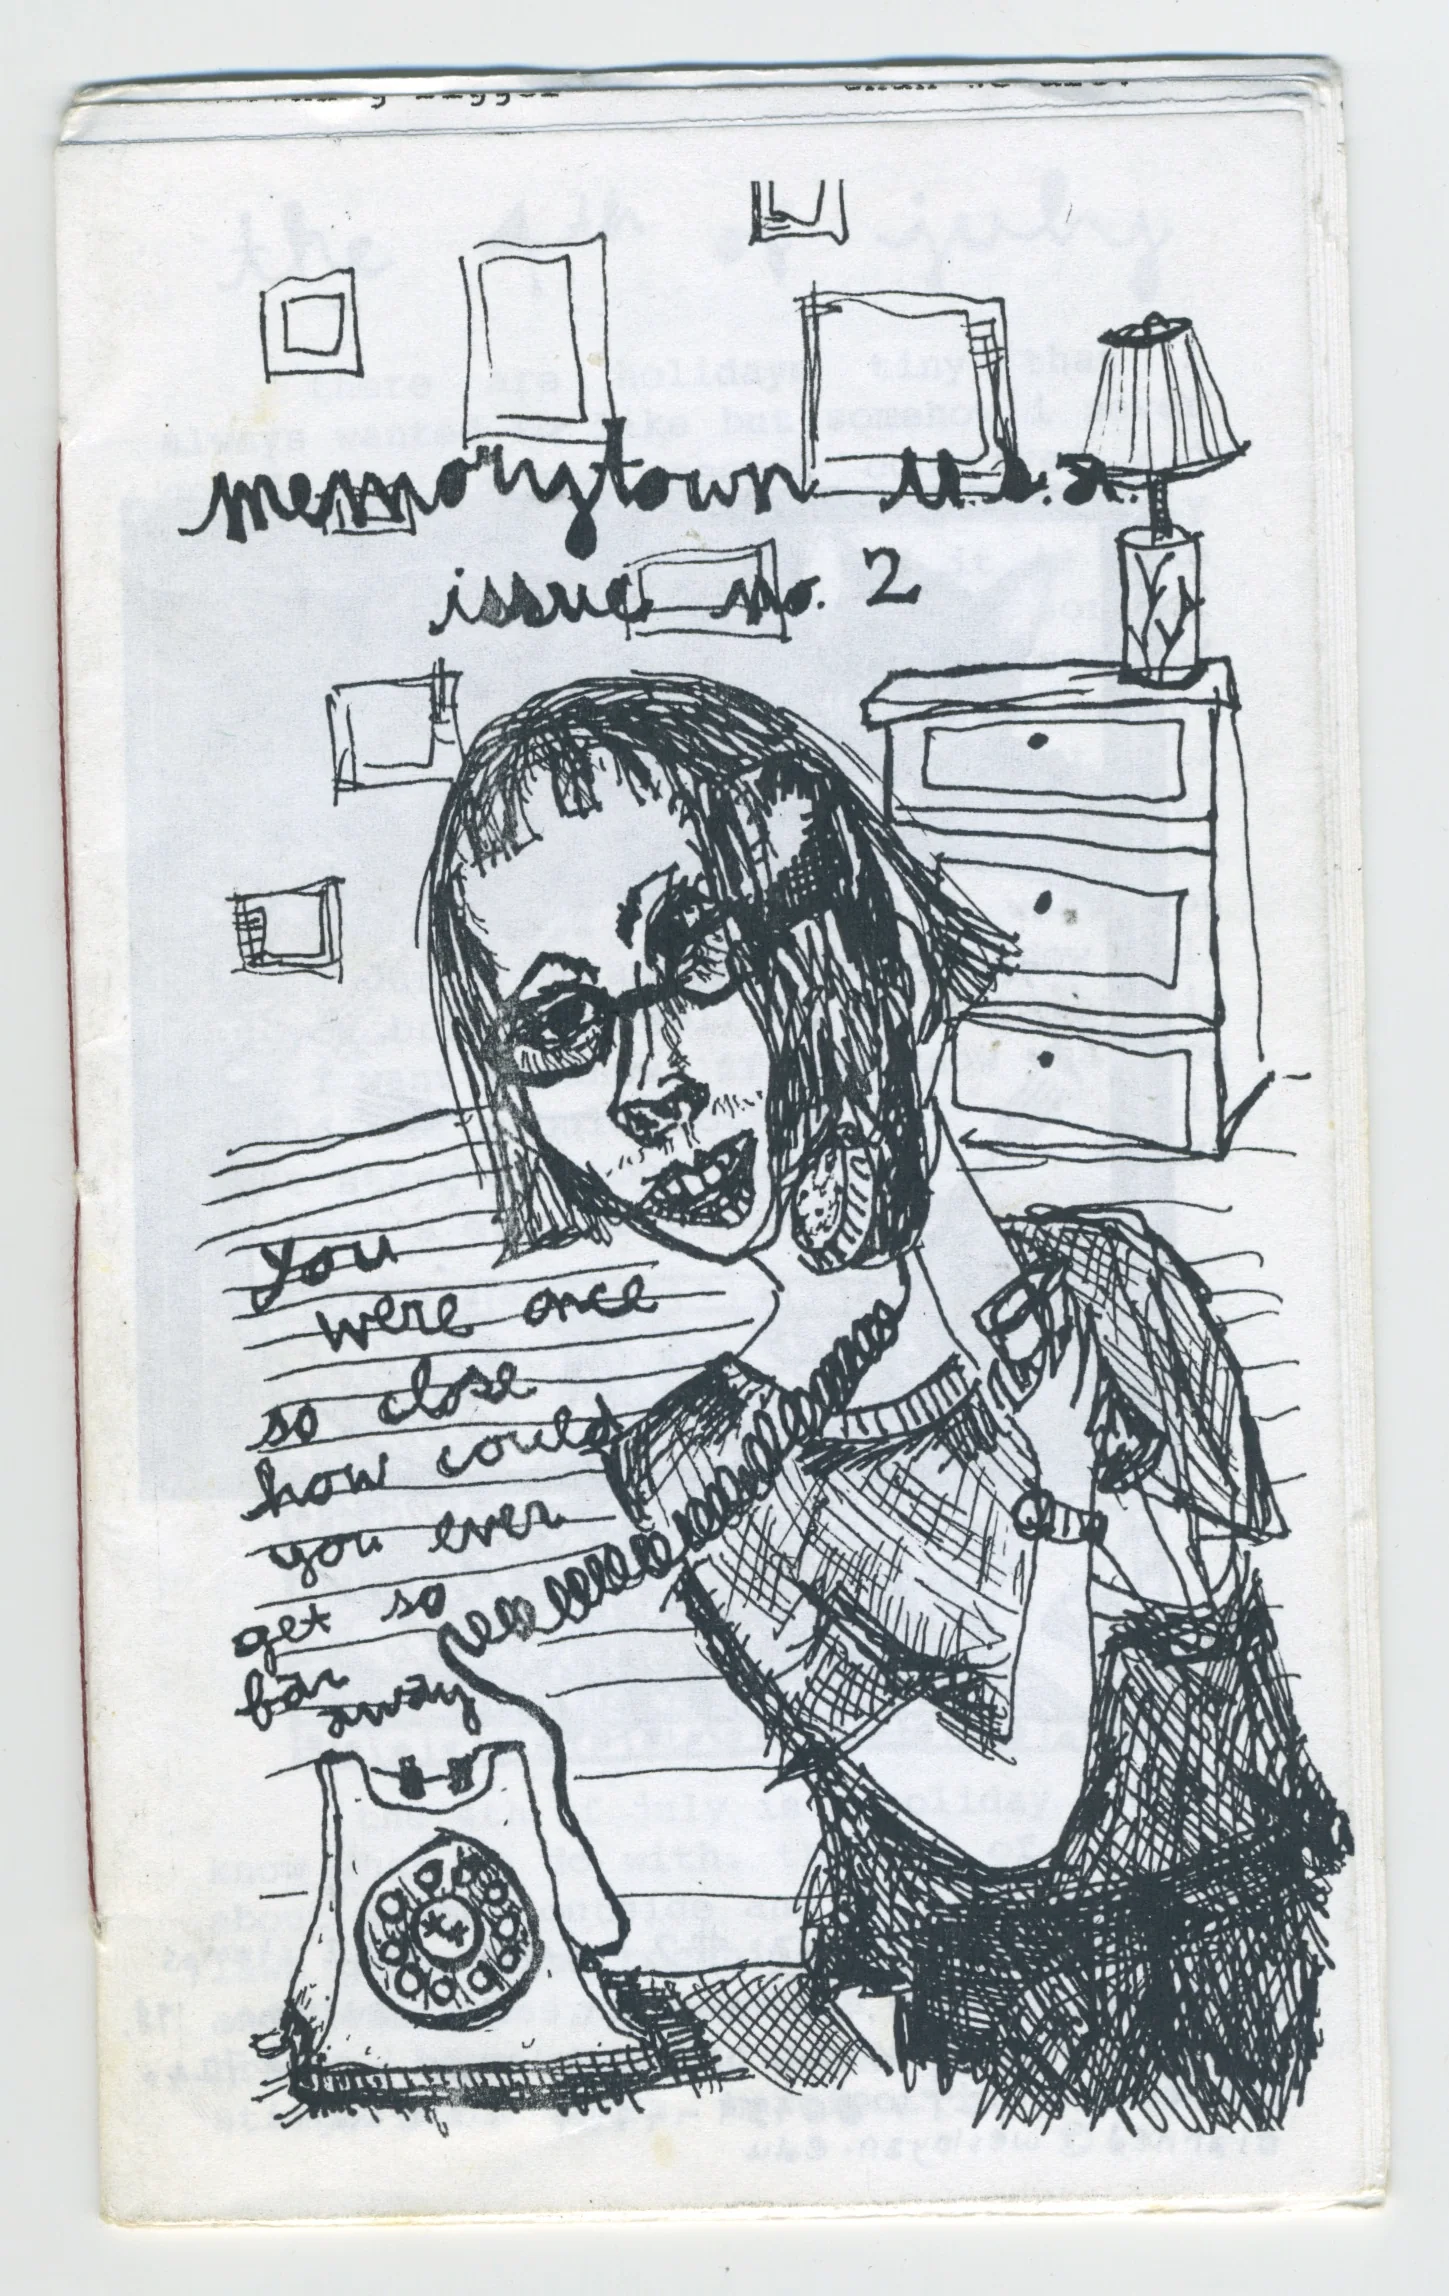 memorytown u.s.a.
issue no. 2
you
were once
so close
how could
you ever
get so
far away